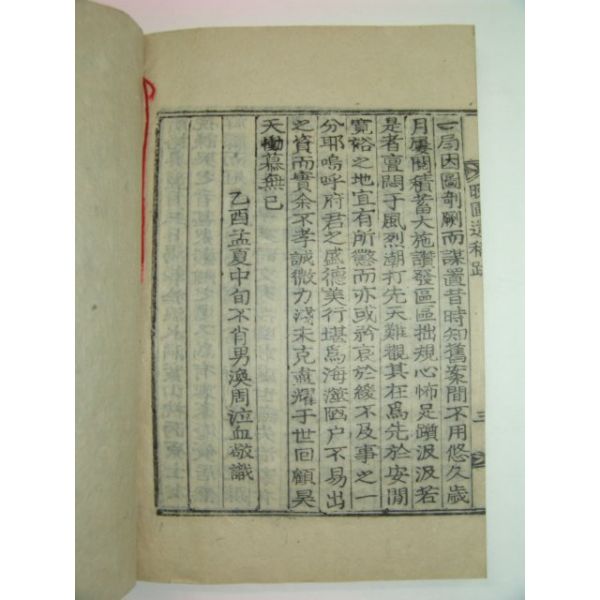 一局因圖剞劂而謀置昔時知舊案間不用悠久歲
月屢閱積蓄大施讚發區區拙規心怖足躓汲汲若
是者亶閼于風烈潮打先天難觀其在爲先於安閒
寬裕之地宜有所懲而亦或矜哀於緩不及事之一
分耶嗚呼府君之盛德美行堪爲海澨陋户不易出
之資而實余不孝誠微力淺未克盡耀于世回顧昊
天慟慕無已
乙酉孟夏中旬不肖男渙周泣血敬識
遺稿跋
三